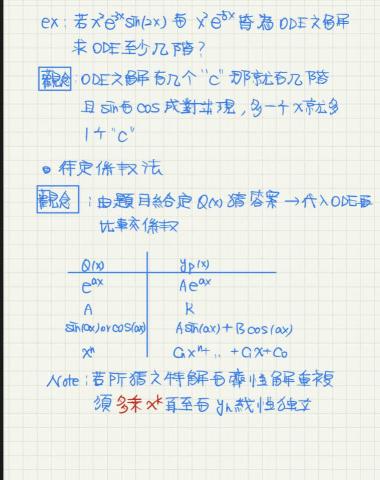 ex:若x³e³ˣsin(2x)與x²e⁻⁵ˣ皆為ODE之解
求ODE至少几階?
觀念:ODE之解有几个"C"那就有几階
且sin與cos成對出現,多一个x就多
1个"C"
•待定係數法
觀念:由題目給定Q(x)猜答案→代入ODE再
比較係數
Q(x) yp(x)
eᵃˣ Aeᵃˣ
A K
sin(ax)orcos(ax) Asin(ax)+Bcos(ax)
xⁿ Cnxⁿ+…+C₁x+C₀
Note:若所猜之特解與齊性解重複
須多乘xᵏ直至與yh線性獨立